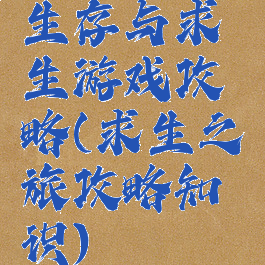 生存与求
生游戏攻
略(求生之
旅攻略知
识)